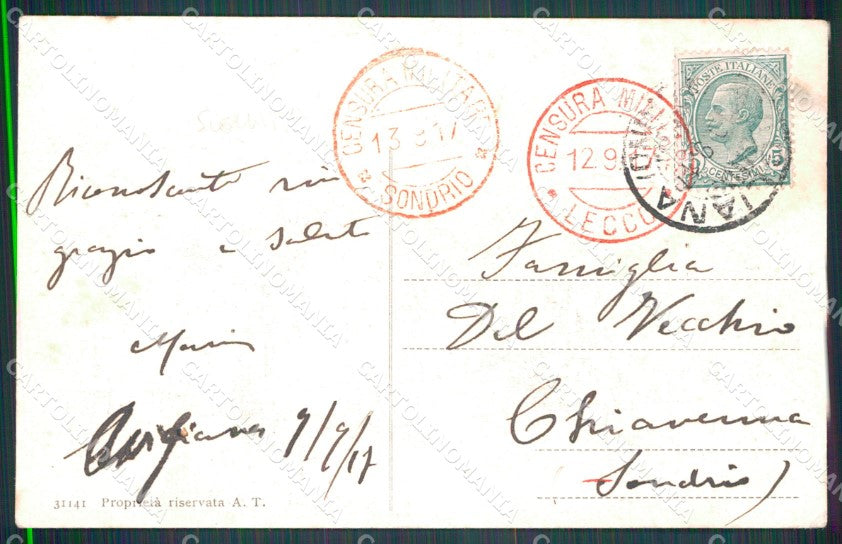 CENSURA MILITARE
13 9 17
* SONDRIO *
CENSURA MILITARE
12 9 17
* LECCO
POSTE ITALIANE
CENTESIMI 5
IANA
Riconoscente rin
grazio e saluto
Famiglia
Del Vecchio
Chiavenna
(Sondrio)
9/9/17
31141 Proprietà riservata A. T.
CARTOLINOMANIA